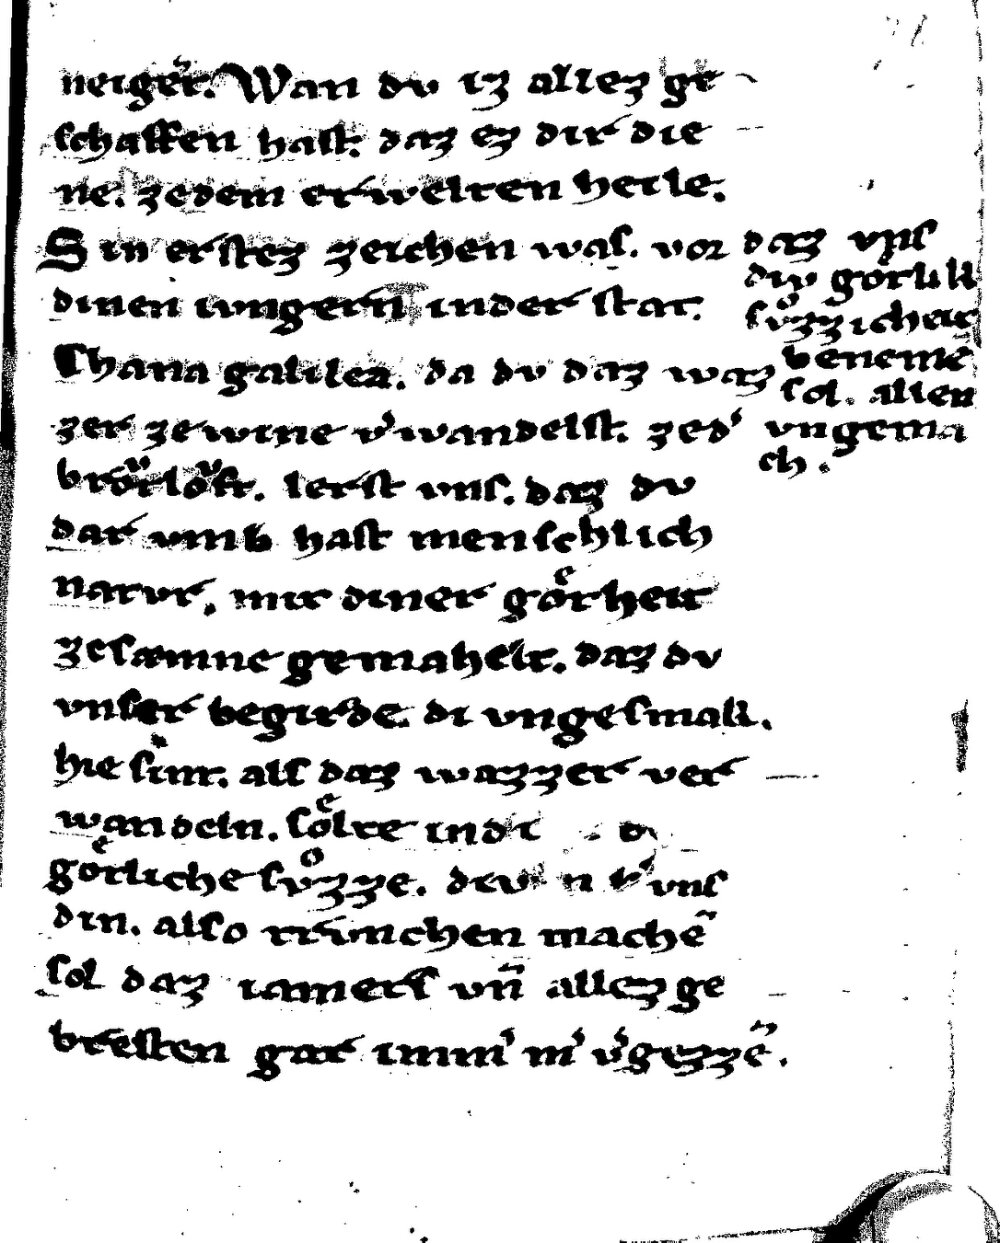 neiger̄. Wan dv iz allez ge
schaffen hast. daz ez dir die
ne. zedem erwelten heile.
Sin erstez zeichen was. vor
dinen ivngern inder stat.
Chana galilea. da dv daz waz
zer ze wine v'wandelst. zed'
brv̈tlovft. lerst vns. daz dv
dar vmb hast menschlich
natvr. mit diner goͤtheit
zesæmne gemahelt. daz dv
vnser begirde. di vngesmak.
hie sint. als daz wazzer ver
wandeln. soͤlte in di
goͤtliche svͦzze. div vns
din. also trvnchen machē
sol daz iamers vn̄ allez ge
bresten gar imm' m' v'gezzē.
daz vns
div gotlich
svͦzzicheit
benemē
sol. allen
vngema
ch.